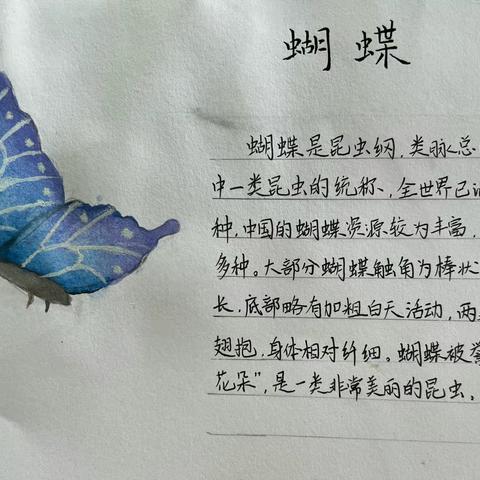 蝴蝶
蝴蝶是昆虫纲,类脉总
中一类昆虫的统称、全世界已
种,中国的蝴蝶资源较为丰富,
多种。大部分蝴蝶触角为棒状
长,底部略有加粗白天活动,两
翅抱,身体相对纤细。蝴蝶被誉
花朵",是一类非常美丽的昆虫。